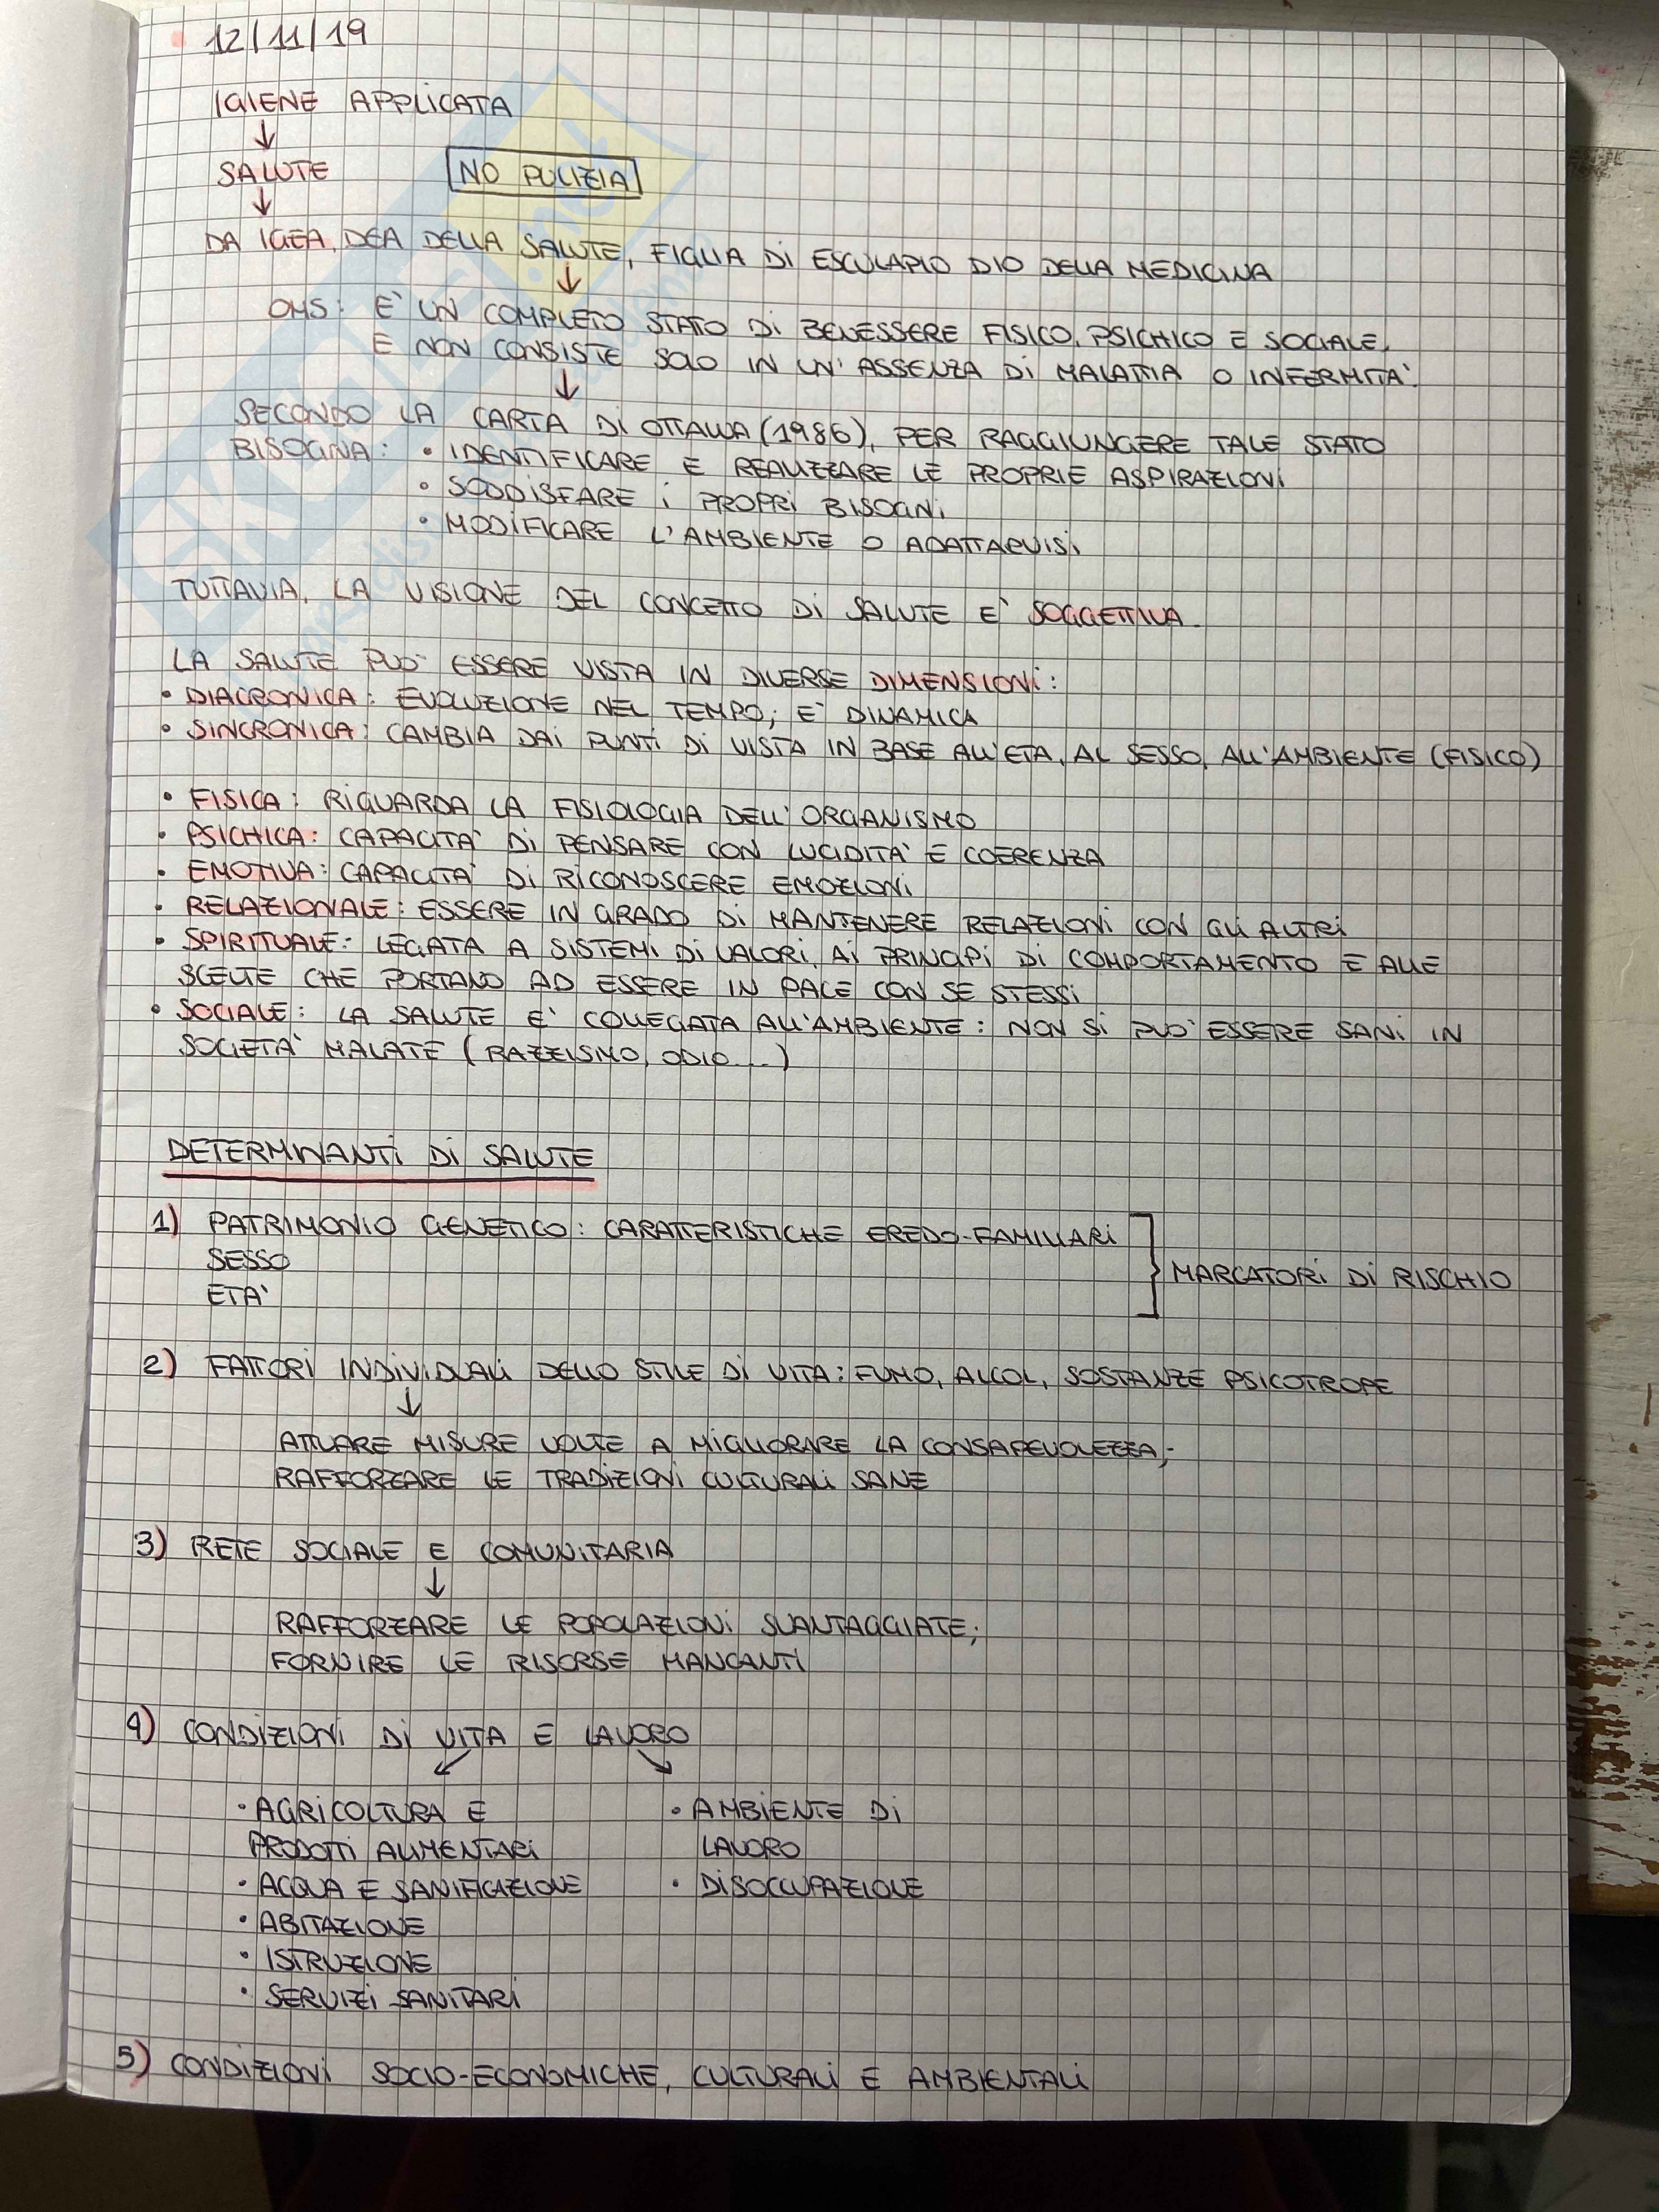 12/11/19
IGIENE APPLICATA
↓
SALUTE
NO PULIZIA
↓
DA IGEA, DEA DELLA SALUTE, FIGLIA DI ESCULAPIO DIO DELLA MEDICINA
↓
OMS: E' UN COMPLETO STATO DI BENESSERE FISICO, PSICHICO E SOCIALE,
E NON CONSISTE SOLO IN UN' ASSENZA DI MALATTIA O INFERMITA'.
↓
SECONDO LA CARTA DI OTTAWA (1986), PER RAGGIUNGERE TALE STATO
BISOGNA: • IDENTIFICARE E REALIZZARE LE PROPRIE ASPIRAZIONI
• SODDISFARE I PROPRI BISOGNI
• MODIFICARE L'AMBIENTE O ADATTARVISI
TUTTAVIA, LA VISIONE DEL CONCETTO DI SALUTE E' SOGGETTIVA.
LA SALUTE PUO' ESSERE VISTA IN DIVERSE DIMENSIONI:
• DIACRONICA: EVOLUZIONE NEL TEMPO; E' DINAMICA
• SINCRONICA: CAMBIA DAI PUNTI DI VISTA IN BASE ALL'ETA, AL SESSO, ALL'AMBIENTE (FISICO)
• FISICA: RIGUARDA LA FISIOLOGIA DELL'ORGANISMO
• PSICHICA: CAPACITA' DI PENSARE CON LUCIDITA' E COERENZA
• EMOTIVA: CAPACITA' DI RICONOSCERE EMOZIONI
• RELAZIONALE: ESSERE IN GRADO DI MANTENERE RELAZIONI CON GLI ALTRI
• SPIRITUALE: LEGATA A SISTEMI DI VALORI, AI PRINCIPI DI COMPORTAMENTO E ALLE
SCELTE CHE PORTANO AD ESSERE IN PACE CON SE STESSI
• SOCIALE: LA SALUTE E' COLLEGATA ALL'AMBIENTE: NON SI PUO' ESSERE SANI IN
SOCIETA' MALATE (RAZZISMO, ODIO...)
DETERMINANTI DI SALUTE
1) PATRIMONIO GENETICO: CARATTERISTICHE EREDO-FAMILIARI
SESSO
ETA'
MARCATORI DI RISCHIO
2) FATTORI INDIVIDUALI DELLO STILE DI VITA: FUMO, ALCOL, SOSTANZE PSICOTROPE
↓
ATTUARE MISURE VOLTE A MIGLIORARE LA CONSAPEVOLEZZA;
RAFFORZARE LE TRADIZIONI CULTURALI SANE
3) RETE SOCIALE E COMUNITARIA
↓
RAFFORZARE LE POPOLAZIONI SVANTAGGIATE;
FORNIRE LE RISORSE MANCANTI
4) CONDIZIONI DI VITA E LAVORO
• AGRICOLTURA E
PRODOTTI ALIMENTARI
• ACQUA E SANIFICAZIONE
• ABITAZIONE
• ISTRUZIONE
• SERVIZI SANITARI
• AMBIENTE DI
LAVORO
• DISOCCUPAZIONE
5) CONDIZIONI SOCIO-ECONOMICHE, CULTURALI E AMBIENTALI